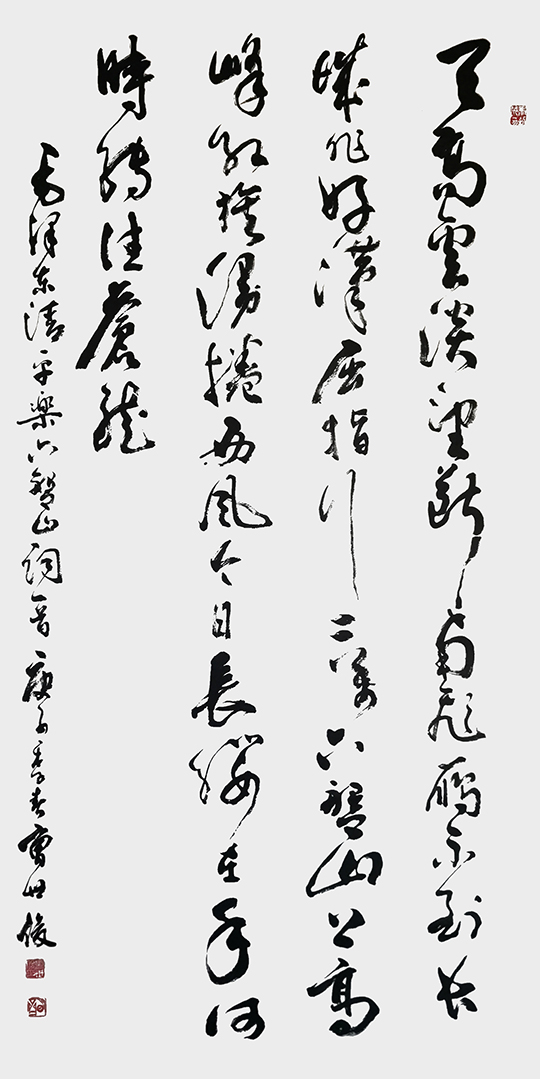 天高雲淡望斷南飛鴈不到长
城非好漢屈指行二萬六盤山上高
峰紅旗漫捲西風今日長纓在手何
時縛住蒼龍
毛澤东清平楽六盤山詞一首庚子季春曹世俊